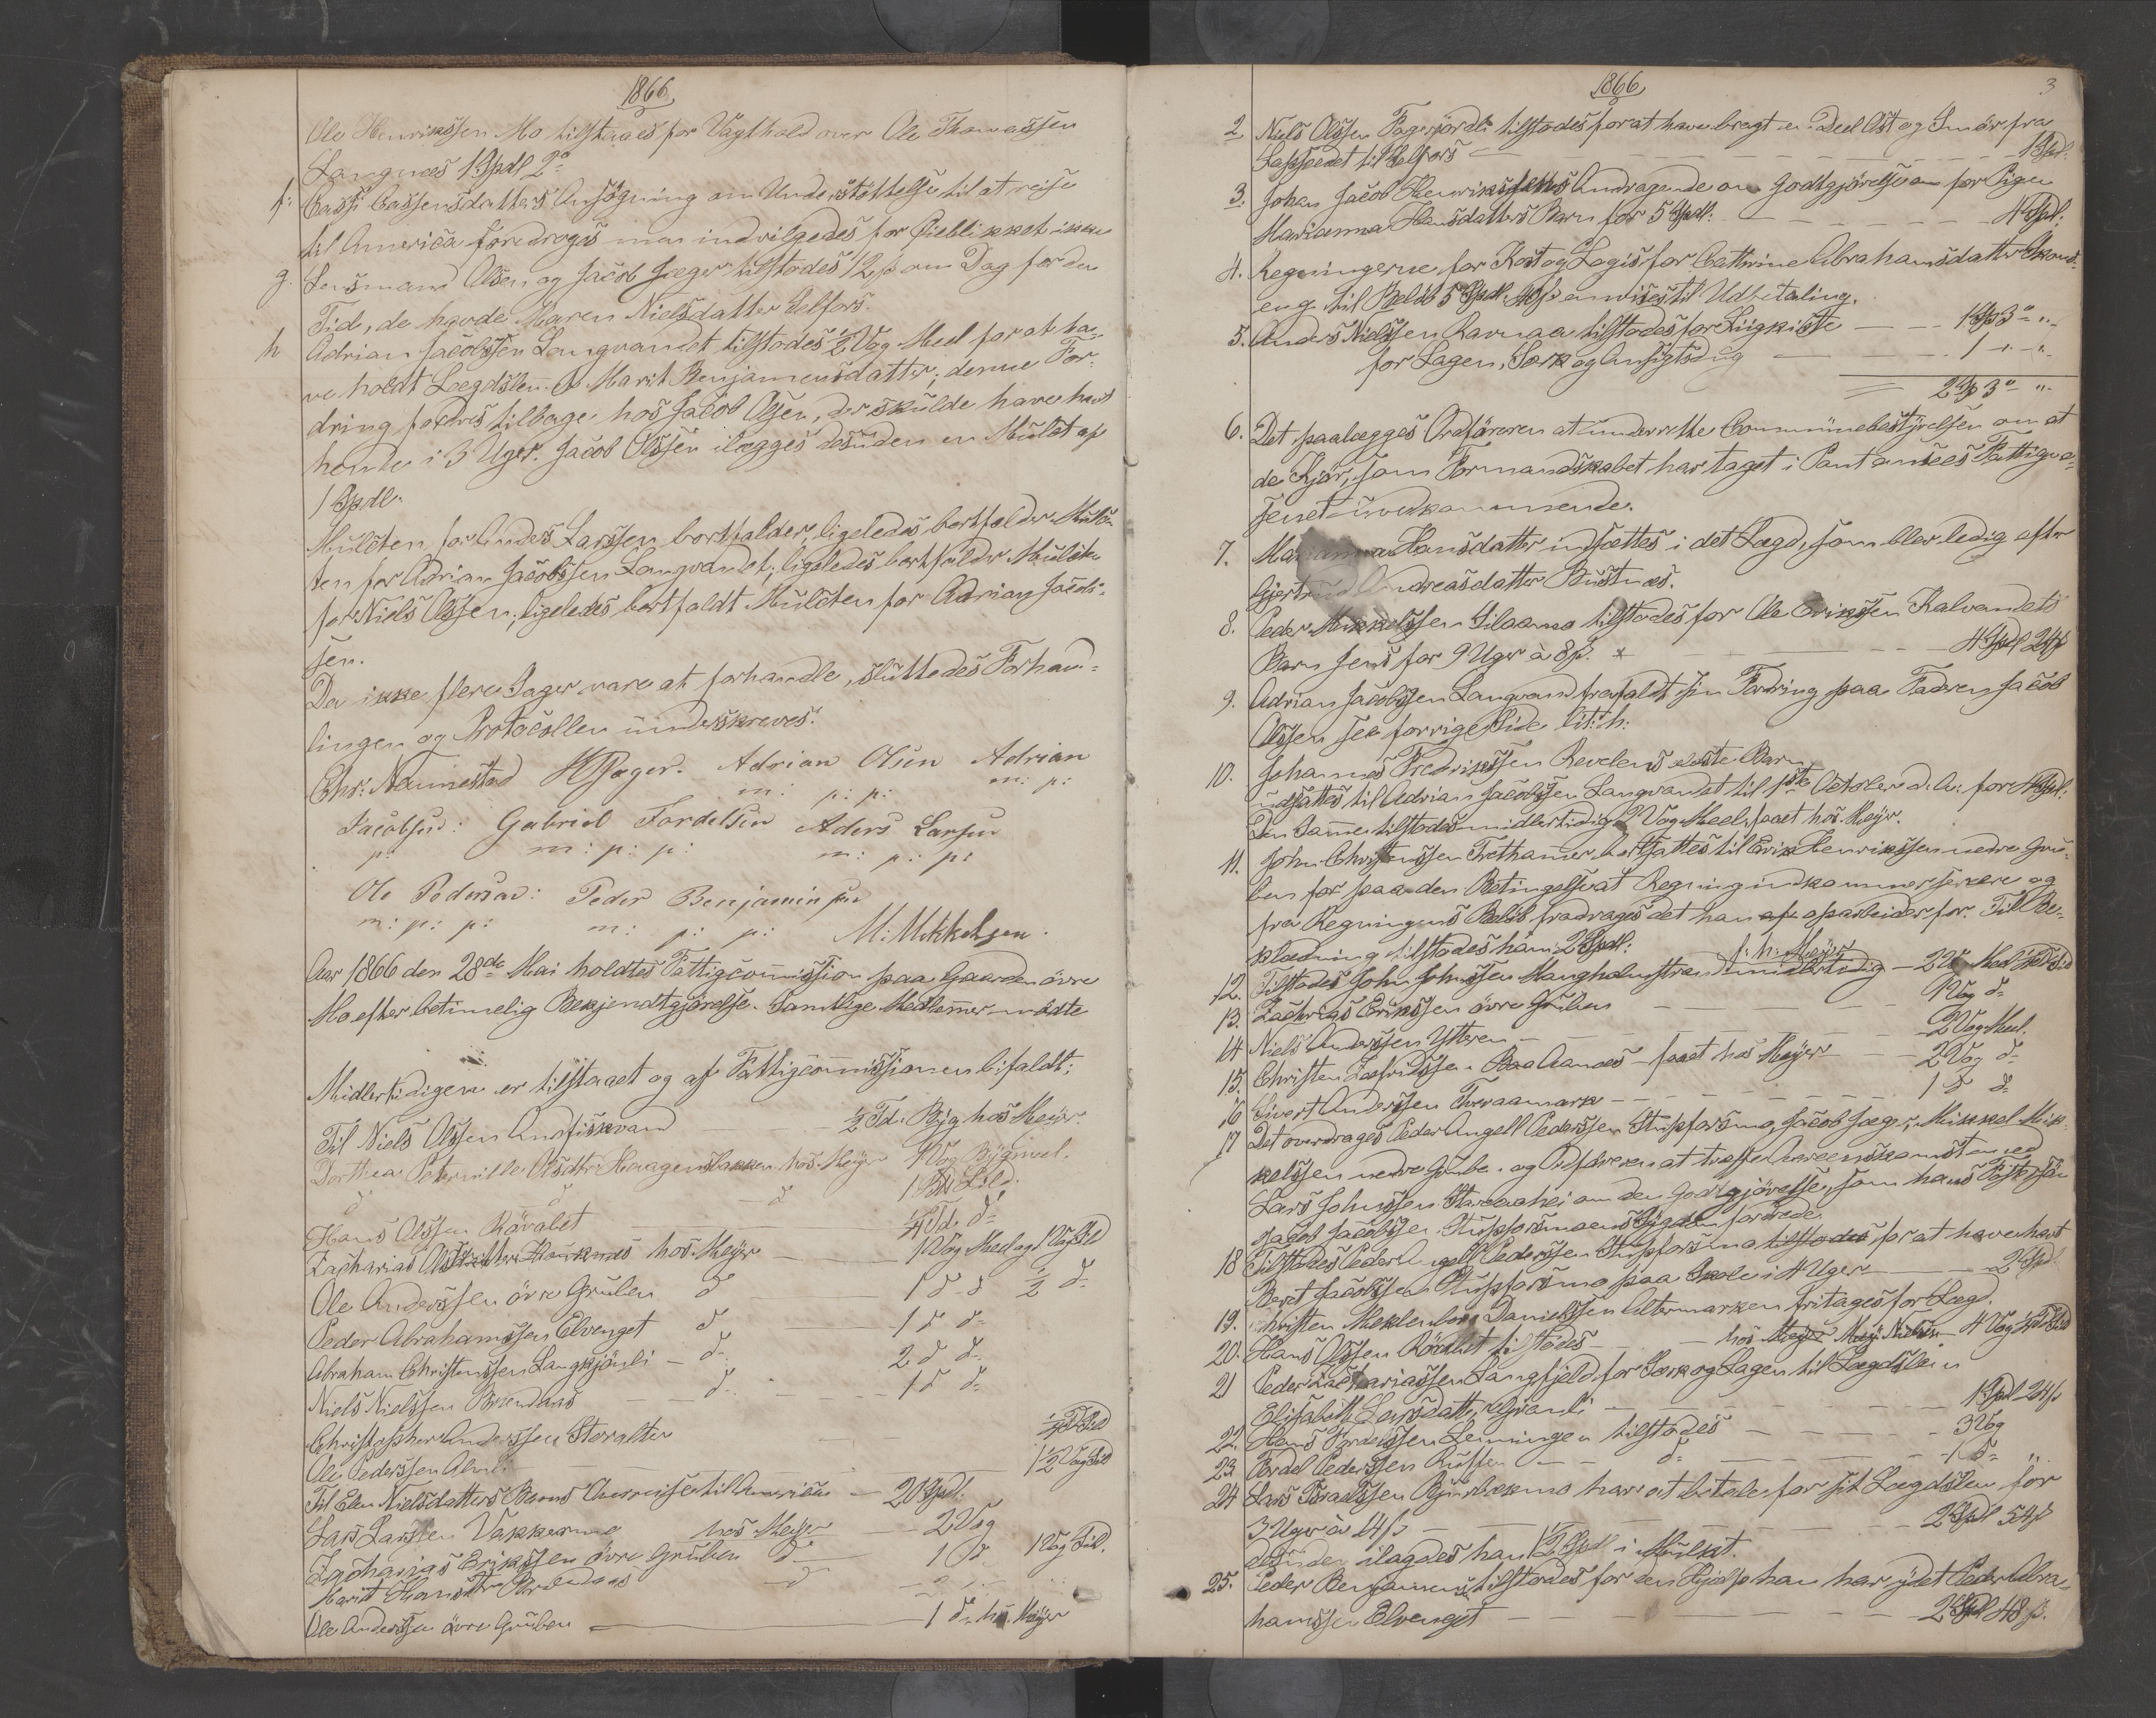 1866
Ole Henrikssen Mo tilstaaes for Vagthold over Ole Thomassen
Langnæs 1 Spdl 2
f: Cassi Cassensdatters Ansøgning om Understøttelse til at reise
til America foredroges men indvilgedes for Øieblikket ikke
g. Lensmand Olsen og Jacob Jæger tilstodes 12 ß om Dag for den
Tid, de havde Maren Nielsdatter Selfors.
h Adrian Jacobssen Langvandet tilstodes 1/2 Vog Meel for at ha-
ve holdt Lægdslem Marit Benjaminsdatter; denne For-
dring fordres tilbage hos Jacob Olssen, der skulde have havt
hende i 3 Uger. Jacob Olssen ilægges desuden en Mulct af
1 Spdl.
Mulcten for Anders Larssen bortfalder, ligeledes bortfalder Mulc-
ten for Adrian Jacobssen Langvandet; ligeledes bortfalder Mulcten
for Niels Olssen; ligeledes bortfaldt Mulcten for Adrian Jacob-
sen.
Da ikke flere Sager vare at forhandle, sluttedes Forhand-
lingen og Protocollen underskreves.
Chr: Neumestad H Jæger. Adrian Olsen Adrian
m: p: p: m: p:
Jacobsen: Gabriel Fordelsen Aders Larsen
p: m: p: p: m: p: p:
Ole Pedersen: Peder Benjaminsen
m: p: p: m: p: p: M: Mikkelsen.
Aar 1866 den 28de Mai holdtes Fattigcommission paa Gaarden øvre
Mo efter betimelig Bekjendtgjørelse. Samtlige Medlemmer mødte
Midlertidigen er tilstaaet og af Fattigcommissionen bifaldt:
Til Niels Olssen Andfiskvand 1/2 Td. Byg hos Meyer.
Dorthea Peternille Olsdtr Haagensbakken hos Meyer 1 Vog Bygmeel.
d d d 1 Sild.
Hans Olssen Rövalet 1/4 Td. d
Zacharias Hauknæs hos Meyer 1 Vog Meel og 1 Vog Sild
Ole Anderssen övre Gruben d 1 d d 1/2 d
Peder Abrahamssen Elvenget d 1 d d
Abraham Christenssen Langfjönli d 2 d d
Niels Nielssen Brendaas d 1 d d
Christopher Anderssen Storalter 1/4 Td Sild
Ole Pederssen Almli 1/2 Vog Sild
Til Elen Nielsdatters Barns Overreise til America 20 Spdl.
Lars Larssen Vakkermo hos Meyer 2 Vog
Zacharias Erikssen övre Gruben d 1 d 1 Vog Sil.
Marit Hansdtr Brendaas d
Ole Anderssen övre Gruben 1 d hos Meyer
1866
3
2. Niels Olssen Fagerjordli tilstodes for at have bragt en Deel Ost og Smör fra
Lappeedet til Selfors 1 Spd.
3. Johan Jacob Henrikssens Andragende om Godtgjörelse for Pigen
Marianna Hansdatters Barn for 5 Spdl. 4 Spd.
4. Regningerne for Kost og Logis for Cathrine Abrahamsdatter Skons-
eng til Beløb 5 Spdl. 40 ß anvises til Udbetaling.
5. Anders Nielssen Ravnaa tilstodes for Liigkiste 1 Sp 3 "
for Lagen, Særk og Ansigtsdug 1 " "
2 Sp 3 "
6. Det paalægges Ordføreren at underrette Communebestyrelsen om at
de Kjør, som Formandskabet har taget i Pant ansees Fattigvæ-
senet uvedkommende.
7. Marianna Hansdatter indsættes i det Lægd, som blev ledig efter
Gjertrud Andreasdatter Bustnes.
8. Peder Mikkelssen Silaamo tilstodes for Ole Erikssen Kalvandets
Barn Jens for 9 Uger à 8 ß. 4 Spdl 24 ß
9. Adrian Jacobssen Langvand frafaldt sin Fordring paa Faderen Jacob
Olssen see forrige Side lit: h:
10. Johannes Fredrikssen Revelens ældste Barn
udsattes til Adrian Jacobssen Langvandet til 1ste October d. A. for 4 Spd.
Den Samme tilstodes midlertidig 2 Vog Meel, faaet hos Meyer.
11. John Christenssen Trethammer bortsattes til Erik Henrikssen nedre Gru-
ben for paa den Betingelse at Regning indkommer senere og
fra Regningens Beløb fradrages det han af arbeider for. Til Be-
klædning tilstodes ham 2 Spdl:
12. Tilstodes John Johnssen Mangholmstrand midlertidig f: h: Meyer 2 V Meel 1/4 Td Sild
13. Zachrias Erikssen övre Gruben 1 Vog d
14 Niels Anderssen Ytteren 2 Vog Meel.
15. Christen Zæfridssen Baa Aanæs faaet hos Meyer 2 Vog d
16 Sivert Anderssen Tveraamark 1 d d
17 Det overdrages Peder Angell Pederssen Stupforsmo, Jacob Jæger, Mikkel Mik-
kelssen nedre Gruben og Ordføreren at træffe Overeenskomst med
Lars Johnssen Storaahei om den Godtgjörelse, som hans Fostersön
Jacob Jacobssen Stupforsmoens fordrede
18 Tilstodes Peder Angell Pederssen Stupforsmo tilstodes for at have havt
Beret Jacobssen Stupforsmo paa Skole i 4 Uger 2 Spd.
19. Christen Meklenborg Danielssen Altermarken fritages for Lægd.
20. Hans Olssen Rövalet tilstodes hos Meyer Nielsen 4 Vog 1/4 Td Sild
21 Peder Zachariassen Langfjeld for Særk og Lagen til Lægdslem
Elisabeth Larsdatter Grönli 1 Spdl 24 ß
22. Hans Fordelssen Lenningen tilstodes 3 Vog
23 Fordel Pederssen Rufsen d 1 d "
24 Lars Israelssen Bjørnbækmo har at betale for sit Lægdslem for
3 Uger à 14 ß 2 Spdl 54 ß
desuden ilagdes han 1/2 Spdl i Mulkt.
25. Peder Benjaminss tilstodes for den Hjælp han har ydet Peder Abra-
hamssen Elvenget 2 Spdl 48 ß.